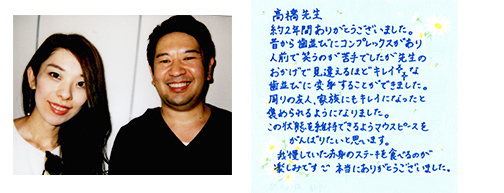 高橋先生
約2年間ありがとうございました。
昔から歯並びにコンプレックスがあり
人前で笑うのが苦手でしたが先生の
おかげで見違えるほどキレイな
歯並びに変身することができました。
周りの友人、家族にもキレイになったと
褒められるようになりました。
この状態を維持できるようマウスピースを
がんばりたいと思います。
我慢していた赤身のステーキを食べるのが
楽しみです♡ 本当にありがとうございました。